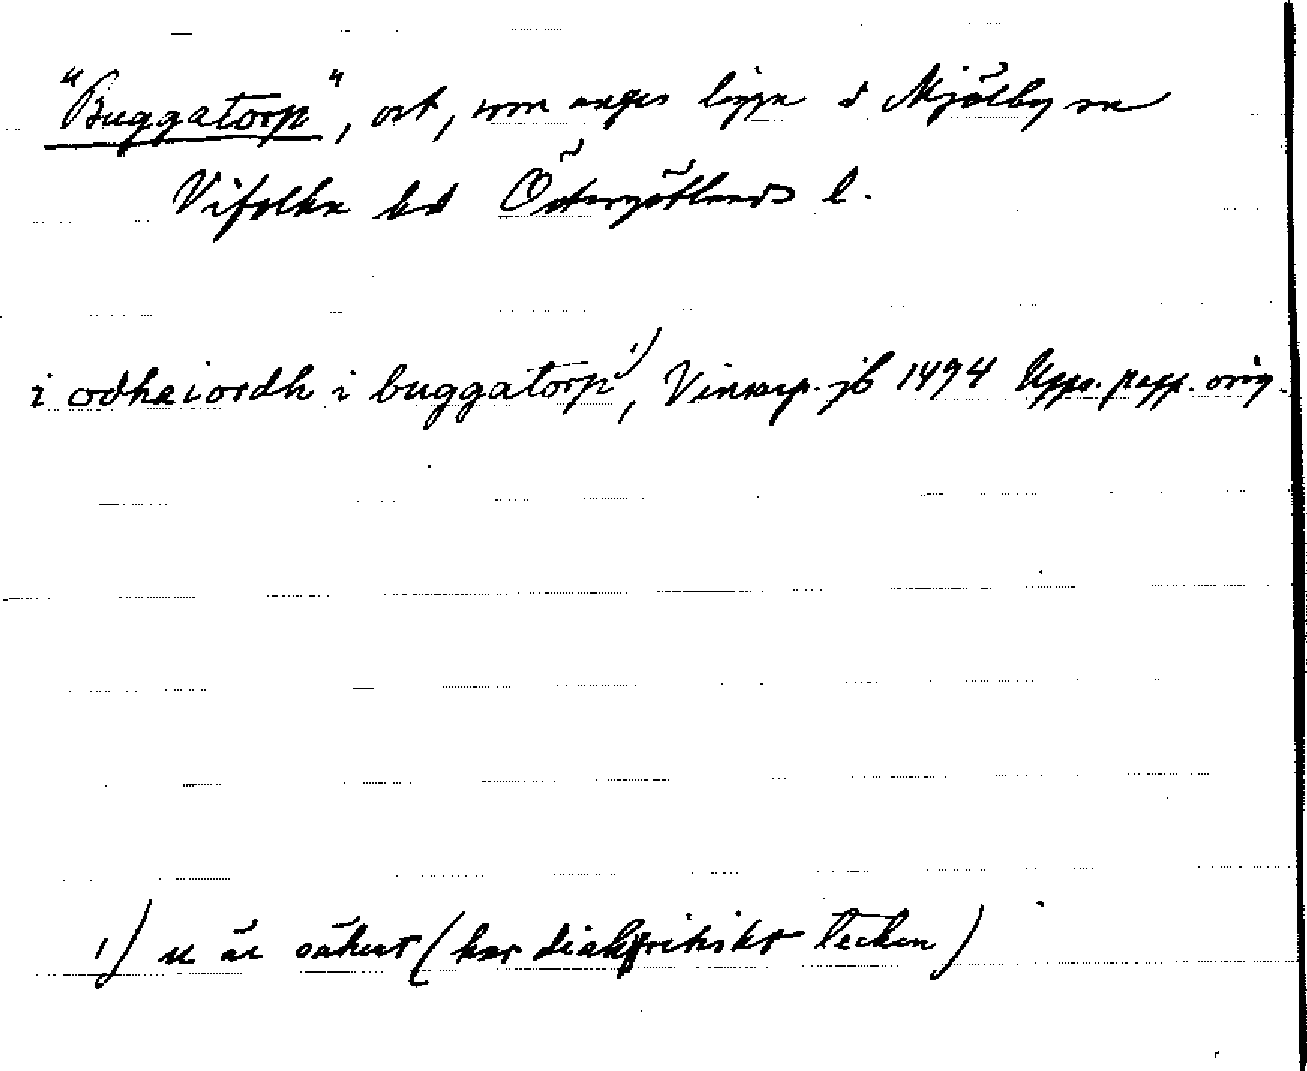 "Buggatorp", ort, som anges ligga i Mjölby sn
Vifolka hd Östergötlands l.
i odhaiordh i buggatorp 1), Vinnarp. jb 1494 Upps. papp. orig.
1) u är säkert (har diakritiskt tecken)